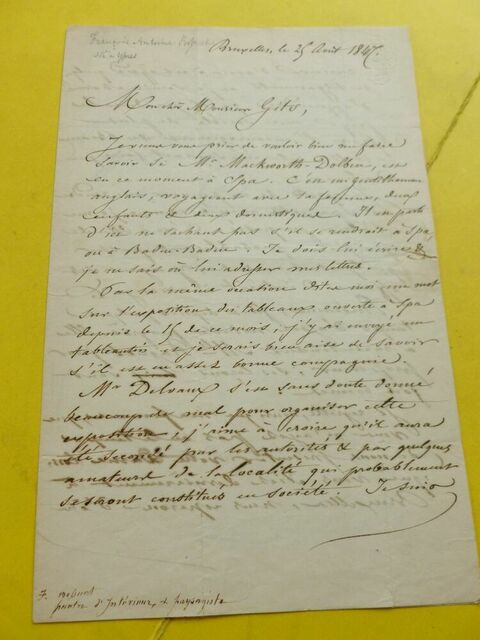 François Antoine
né à Ypres
Bruxelles, le 25 Août 1847.
Mon cher Monsieur Gités,
Je viens vous prier de vouloir bien me faire
savoir si Mr. Mackworth-Dolben, est
en ce moment à Spa. C'est un gentilhomme
anglais, voyageant avec sa femme, deux
enfants et deux domestiques. Il est parti
d'ici ne sachant pas s'il se rendrait à Spa
ou à Baden-Baden. Je dois lui écrire &
je ne sais où lui adresser mes lettres.
Par la même occasion dites moi un mot
sur l'exposition des tableaux ouverte à Spa
depuis le 15 de ce mois, j'y ai envoyé un
tableautin et je serais bien aise de savoir
s'il est en assez bonne compagnie.
Mr Delvaux s'est sans doute donné
beaucoup de mal pour organiser cette
exposition, j'aime à croire qu'il aura
été secondé par les autorités & par quelques
amateurs de la localité qui probablement
se seront constitués en société. Je suis
peintre d'Intérieurs, & paysagiste